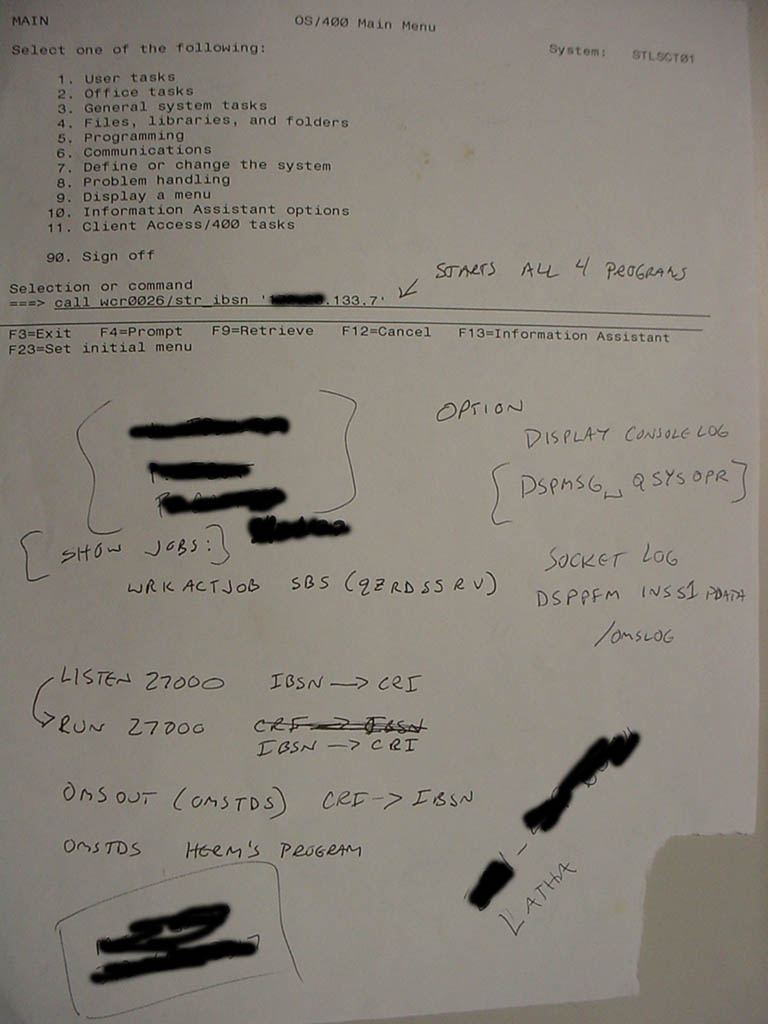 MAIN OS/400 Main Menu
Select one of the following: System: STLSCT01
1. User tasks
2. Office tasks
3. General system tasks
4. Files, libraries, and folders
5. Programming
6. Communications
7. Define or change the system
8. Problem handling
9. Display a menu
10. Information Assistant options
11. Client Access/400 tasks
90. Sign off
STARTS ALL 4 PROGRAMS
Selection or command
===> call wcr0026/str_ibsn ' .133.7'
F3=Exit F4=Prompt F9=Retrieve F12=Cancel F13=Information Assistant
F23=Set initial menu
OPTION
DISPLAY CONSOLE LOG
[DSPMSG␣QSYSOPR]
[SHOW JOBS:]
WRKACTJOB SBS (QZRDSSRV)
SOCKET LOG
DSPPFM INSS1PDATA
/OMSLOG
LISTEN 27000 IBSN → CRI
RUN 27000 CRI → IBSN
IBSN → CRI
OMSOUT (OMSTDS) CRI → IBSN
OMSTDS HERM'S PROGRAM
LATHA